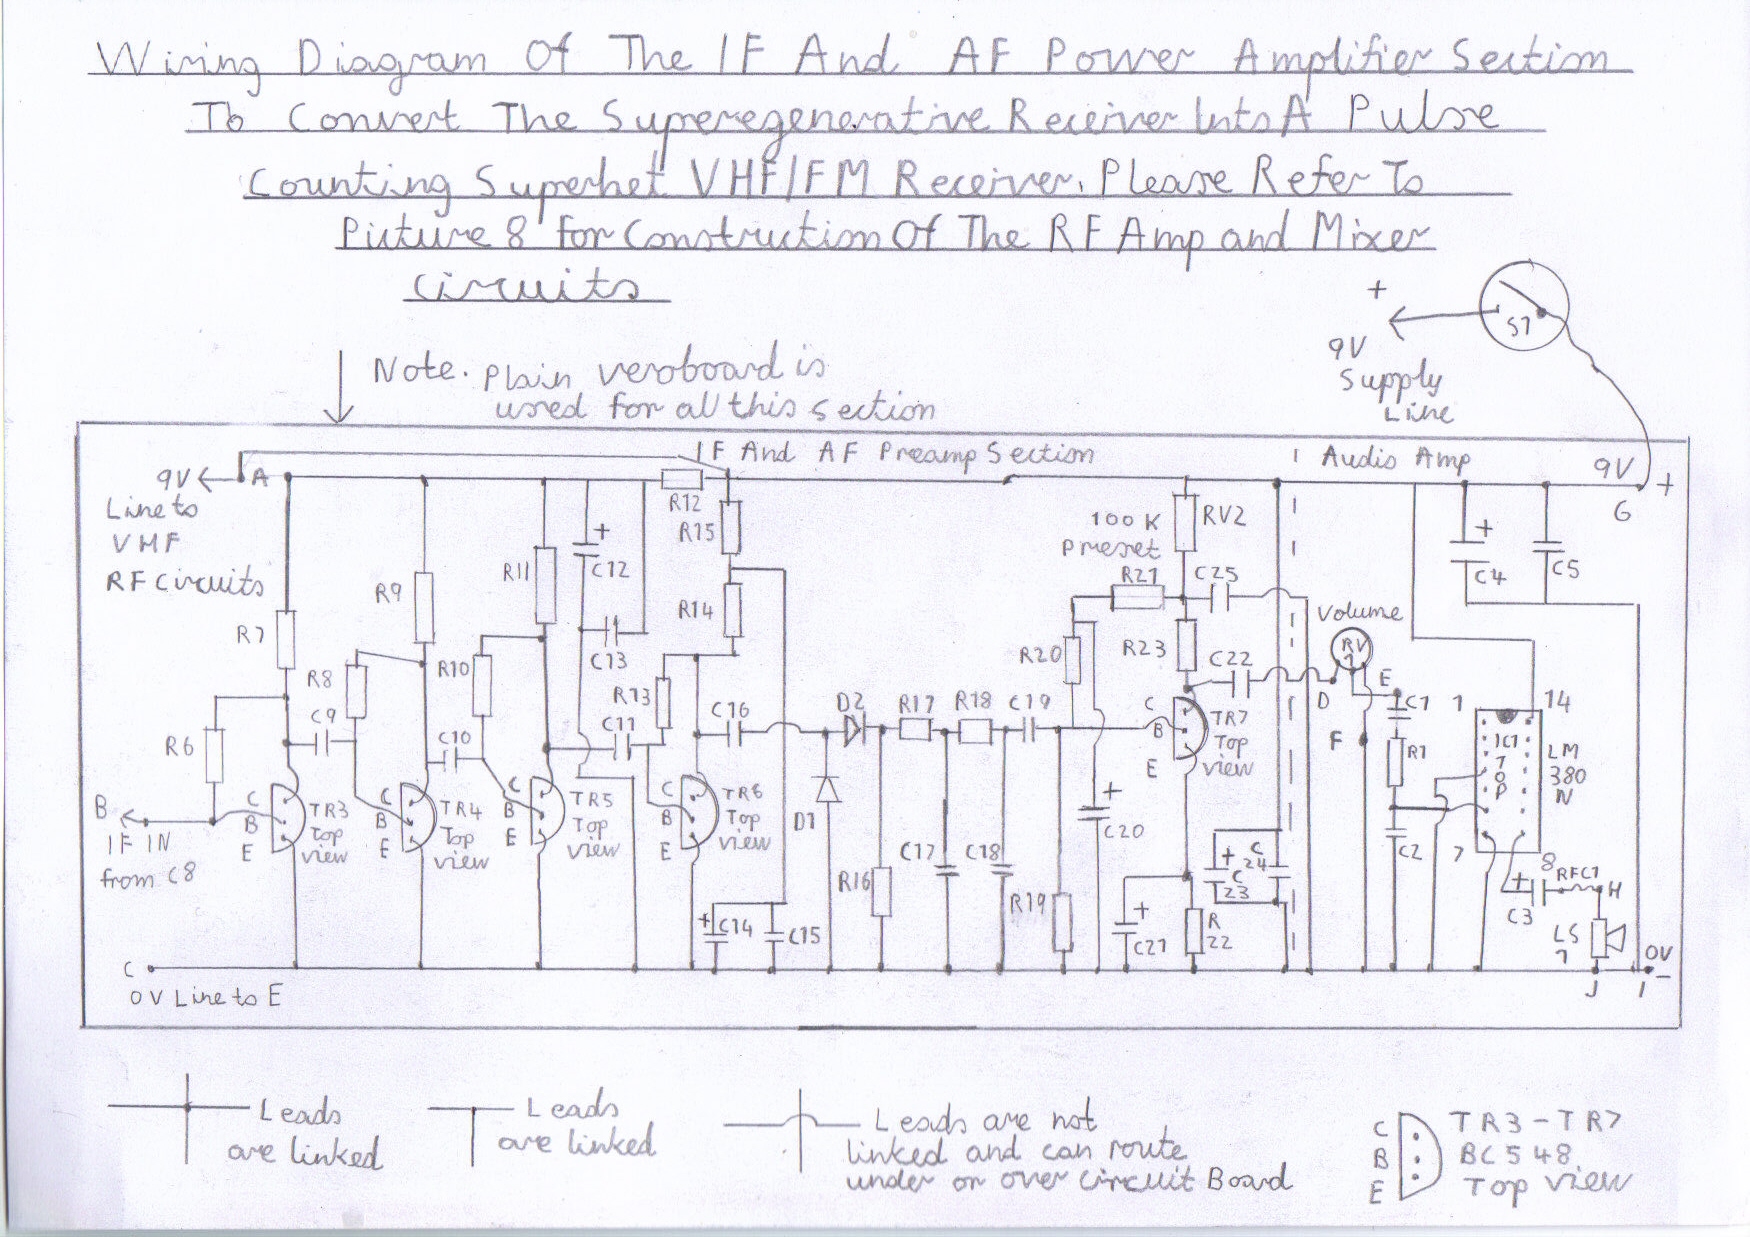 Wiring Diagram Of The IF And AF Power Amplifier Section
To Convert The Superegenerative Receiver Into A Pulse
Counting Superhet VHF/FM Receiver. Please Refer To
Picture 8 for Construction Of The RF Amp and Mixer
Circuits
+
9V
Supply
Line
S1
Note. Plain veroboard is
used for all this section
IF And AF Preamp Section
Audio Amp
9V
+
G
9V
A
Line to
VHF
RF Circuits
R12
R15
100K
Preset
RV2
C4
+
C5
R7
R9
R11
+
C12
C13
R14
R21
C25
Volume
RV
1
R8
R10
R13
R20
R23
C22
D
E
F
R6
C9
C10
C11
C16
D2
R17
R18
C19
C
B
E
TR7
Top
view
C1
R1
C2
1
14
IC1
TOP
LM
380
N
7
8
B
IF IN
from C8
C
B
E
TR3
Top
view
C
B
E
TR4
Top
view
C
B
E
TR5
Top
view
C
B
E
TR6
Top
view
D1
R16
C17
C18
R19
+
C20
+
C21
R
22
+
C
23
C
24
+
C3
RFC1
H
LS
1
+
C14
C15
C
0V Line to E
0V
-
J
I
Leads
are linked
Leads
are linked
Leads are not
linked and can route
under or over circuit Board
C
B
E
TR3-TR7
BC548
Top view